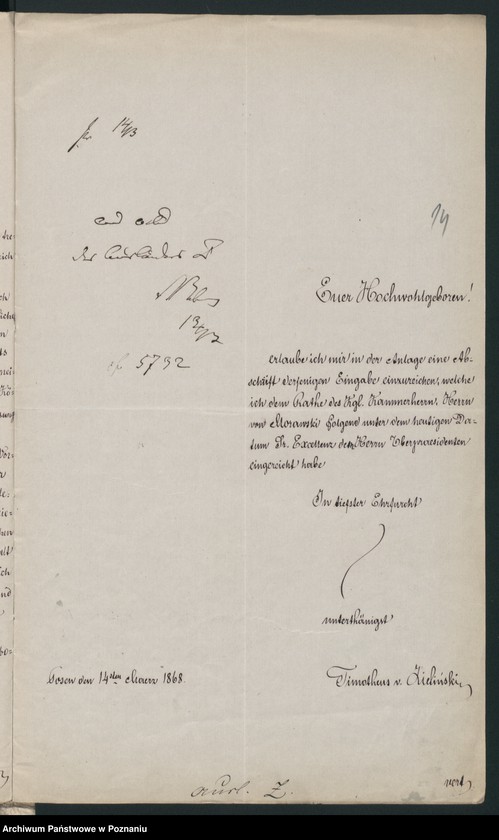 14/3
14
ad acta
der Ausländer Z
13/3
cf 5792
Euer Hochwohlgeboren!
erlaube ich mir in der Anlage eine Ab-
schrift derjenigen Eingabe einzureichen, welche
ich dem Rathe des Kgl. Kammerherrn, Herrn
von Morawski folgend unter dem heutigen Da-
tum Sr. Excellenz dem Herrn Oberpraesidenten
eingereicht habe
In tiefster Ehrfurcht
unterthänigst
Posen den 14ten Maerz 1868.
Timotheus v. Zieliński
vert
ausl. Z.
Archiwum Państwowe w Poznaniu